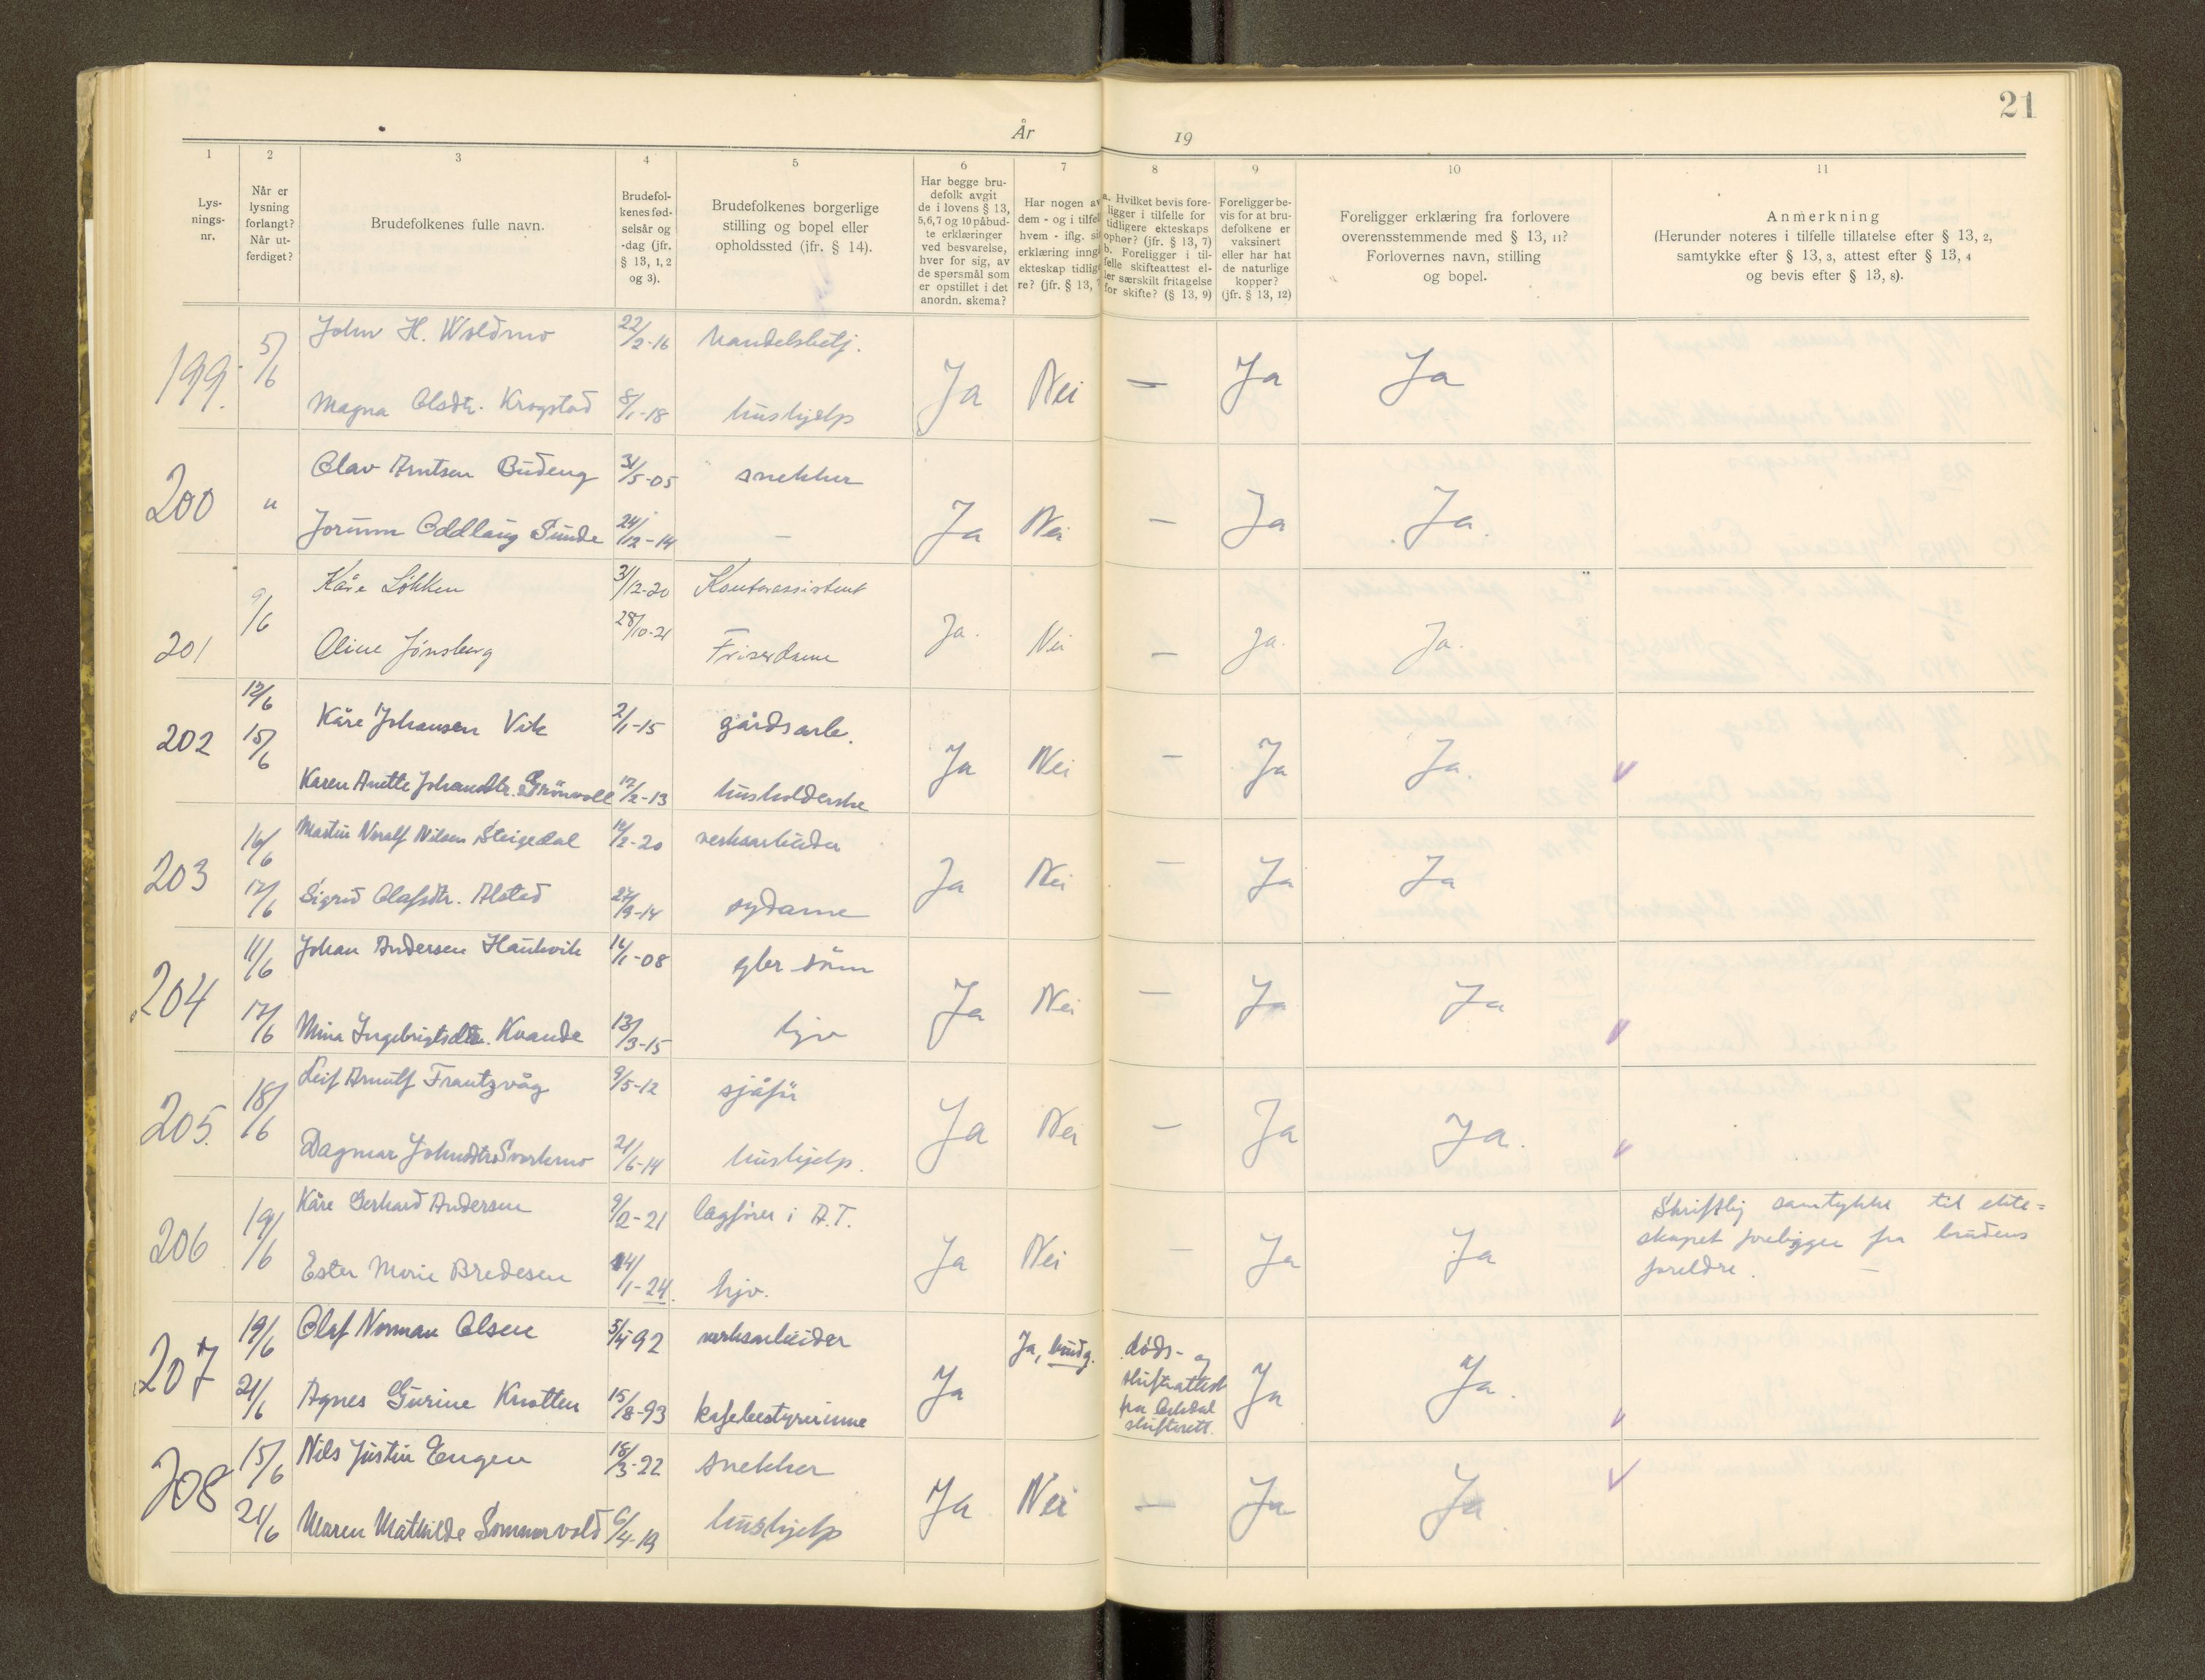 21
År 19
1 2 3 4 5 6 7 8 9 10 11
Lys-
nings-
nr.
Når er
lysning
forlangt?
Når ut-
ferdiget?
Brudefolkenes fulle navn.
Brudefol-
kenes fød-
selsår og
-dag (jfr.
§ 13, 1, 2
og 3).
Brudefolkenes borgerlige
stilling og bopel eller
opholdssted (jfr. § 14).
Har begge bru-
defolk avgit
de i lovens § 13,
5,6,7 og 10 påbud-
te erklæringer
ved besvarelse,
hver for sig, av
de spørsmål som
er opstillet i det
anordn. skema?
Har nogen av
dem - og i tilfel
hvem - iflg. si
erklæring inng
ekteskap tidlig
re? (jfr. § 13, 7
a. Hvilket bevis fore-
ligger i tilfelle for
tidligere ekteskaps
ophør? (jfr. § 13, 7)
b. Foreligger i til-
felle skifteattest el-
ler særskilt fritagelse
for skifte? (§ 13, 9)
Foreligger be-
vis for at bru-
defolkene er
vaksinert
eller har hat
de naturlige
kopper?
(jfr. § 13, 12)
Foreligger erklæring fra forlovere
overensstemmende med § 13, 11?
Forlovernes navn, stilling
og bopel.
Anmerkning
(Herunder noteres i tilfelle tillatelse efter § 13, 2,
samtykke efter § 13, 3, attest efter § 13, 4
og bevis efter § 13, 8).
199. 5/6 John H. Woldmo 22/2-16 handelsbetj.
Magna Olsdtr. Krogstad 8/1-18 hushjelp Ja Nei — Ja Ja
200 " Olav Arntsen Budeng 31/5-05 snekker
Jorunn Oddlaug Sunde 24/12-14 — Ja Nei — Ja Ja.
201 9/6 Kåre Løkken 31/12-20 Kontorassistent
Oline Jønsberg 28/10-21 Friserdame Ja. Nei — Ja. Ja.
202 12/6 15/6 Kåre Johansen Vik 2/1-15 gårdsarb.
Karen Anette Johansdtr. Grönvoll 17/2-13 husholderske Ja Nei — Ja Ja.
203 16/6 17/6 Martin Noralf Nilsen Steigedal 12/2-20 verksarbeider
Sigrid Olafsdtr. Alstad 27/9-14 sydame Ja Nei — Ja Ja
204 11/6 17/6 Johan Andersen Haukvik 16/1-08 gbr. sönn
Mina Ingebrigtsdtr. Kvande 13/3-15 hjv Ja Nei — Ja Ja
205. 18/6 Leif Arnulf Frantzvåg 9/5-12 sjåfør
Dagmar Johnsdtr Svorkmo 21/6-14 hushjelp. Ja Nei — Ja Ja.
206 19/6 Kåre Gerhard Andersen 9/2-21 lagfører i A.T.
Ester Marie Bredesen 14/1-24. hjv. Ja Nei — Ja Ja
Skriftlig samtykke til ekte=
skapet foreligger fra brudens
foreldre. —
207 19/6 21/6 Olaf Norman Olsen 5/4-92 verksarbeider
Agnes Gurine Knotten 15/8-93 kafebestyrerinne Ja Ja, brudg.
døds- og
skifteattest
fra Orkdal
skifterett.
Ja Ja.
208 15/6 21/6 Nils Justin Engen 18/3-22 snekker
Maren Mathilde Sommervold 6/4-19 hushjelp Ja Nei — Ja Ja